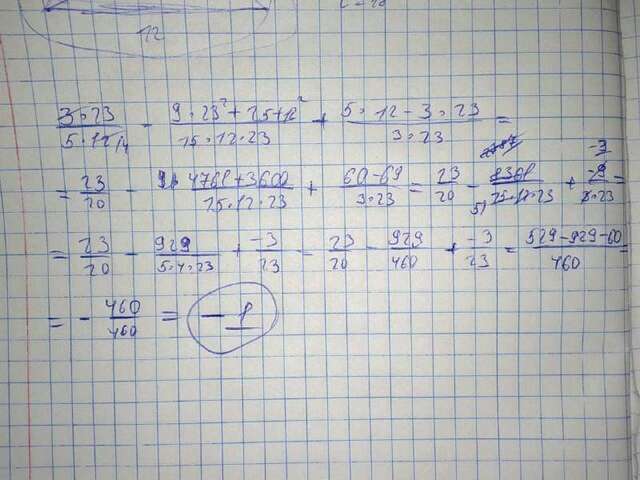 12
3·23/5·12/4 - 9·23²+25·12²/15·12·23 + 5·12-3·23/3·23 =
= 23/20 - 4761+3600/15·12·23 + 60-69/3·23 = 23/20 - 8361/15·12·23 + -9/3·23 -3
= 23/20 - 929/5·4·23 + -3/23 = 23/20 - 929/460 + -3/23 = 529-929-60/460 =
= - 460/460 = -1